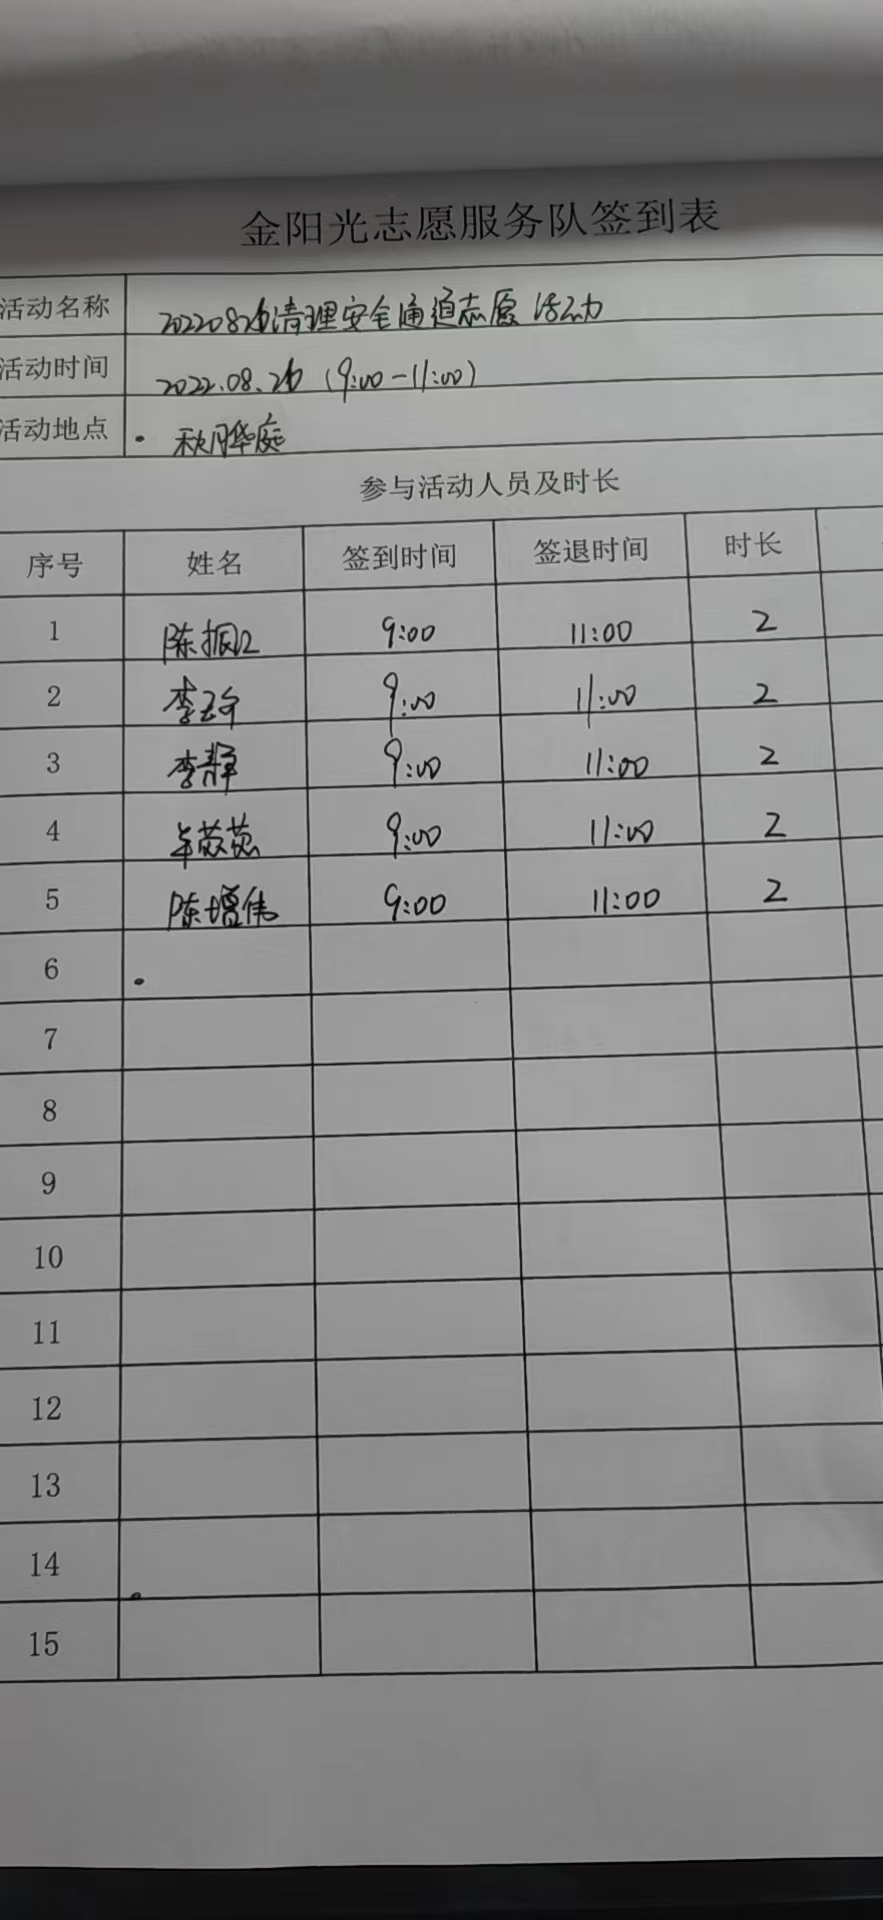 金阳光志愿服务队签到表
活动名称 20220826清理安全通道志愿活动
活动时间 2022.08.26（9:00-11:00）
活动地点 秋月华庭
参与活动人员及时长
序号 姓名 签到时间 签退时间 时长
1 陈振江 9:00 11:00 2
2 李玉 9:00 11:00 2
3 李静 9:00 11:00 2
4 牟苾苾 9:00 11:00 2
5 陈增伟 9:00 11:00 2
6
7
8
9
10
11
12
13
14
15